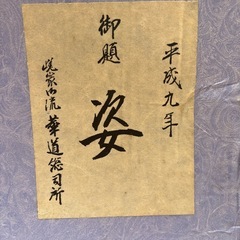 平成九年
御題
姿
嵯峨御流
華道総司所